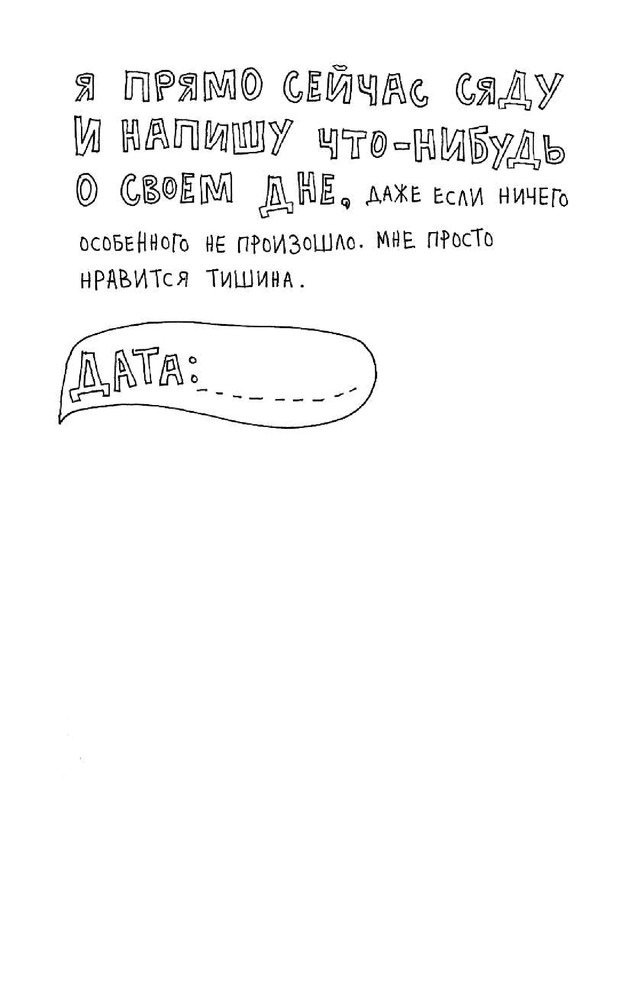 Я ПРЯМО СЕЙЧАС СЯДУ
И НАПИШУ ЧТО-НИБУДЬ
О СВОЕМ ДНЕ, ДАЖЕ ЕСЛИ НИЧЕГО
ОСОБЕННОГО НЕ ПРОИЗОШЛО. МНЕ ПРОСТО
НРАВИТСЯ ТИШИНА.
ДАТА: